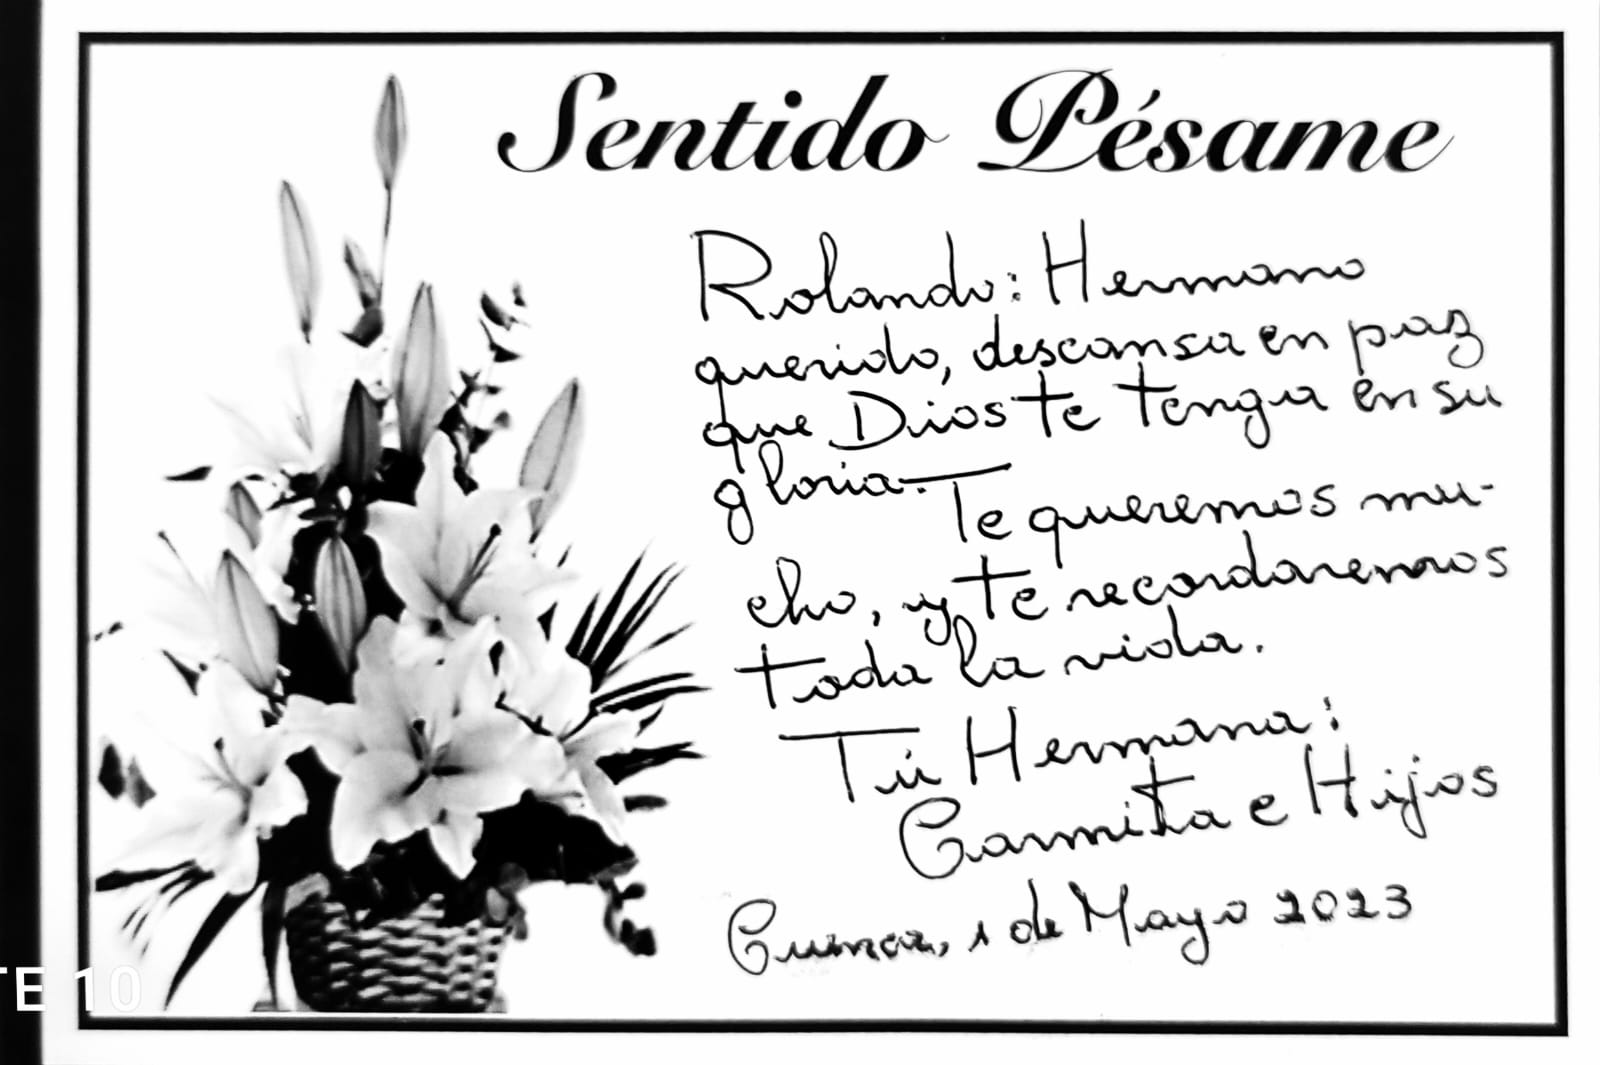 Sentido Pésame
Rolando: Hermano
querido, descansa en paz
que Dios te tenga en su
gloria. Te queremos mu-
cho, y te recordaremos
toda la vida.
Tú Hermana:
Carmita e Hijos
Cuenca, 1 de Mayo 2023
TE 10